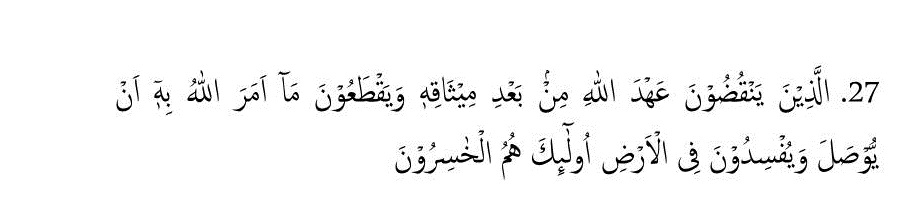 27. الَّذِيْنَ يَنْقُضُوْنَ عَهْدَ اللهِ مِنْۢ بَعْدِ مِيْثَاقِهٖ وَيَقْطَعُوْنَ مَآ اَمَرَ اللهُ بِهٖٓ اَنْ
يُّوْصَلَ وَيُفْسِدُوْنَ فِى الْاَرْضِ اُولٰۤىِٕكَ هُمُ الْخٰسِرُوْنَ